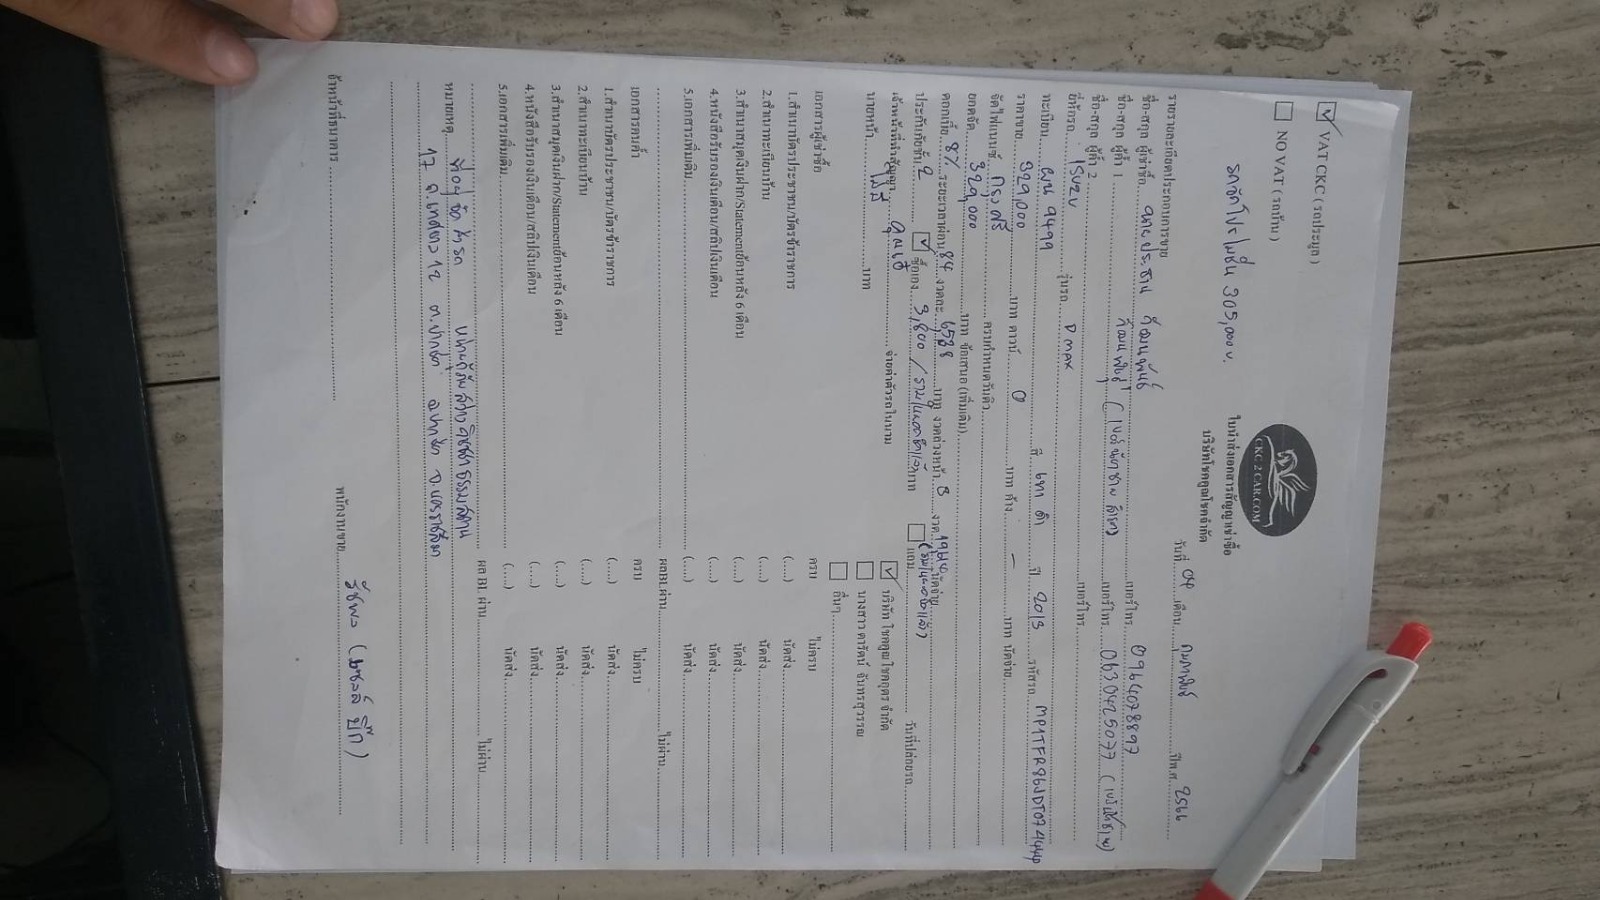 ☑ VAT CKC ( รถประมูล )
☐ NO VAT ( รถบ้าน )
รถจัดโปรโมชั่น 305,000 บ.
CKC2CAR.COM
ใบนำส่งเอกสารสัญญาเช่าซื้อ
บริษัทโชคคูณโชคจำกัด
วันที่ 04 เดือน กุมภาพันธ์ ปีพ.ศ. 2566
รายรายละเอียดประกอบการขาย
ชื่อ-สกุล ผู้เช่าซื้อ นายประธาน เบอร์โทร 0964078897
ชื่อ-สกุล ผู้ค้ำ 1 เบอร์โทร 0630425077
ชื่อ-สกุล ผู้ค้ำ 2 เบอร์โทร
ยี่ห้อรถ ISUZU รุ่นรถ D MAX
ทะเบียน ผน 9499 สี เทา ดำ ปี 2013 รหัสรถ
ราคาขาย 329,000 บาท ดาวน์ 0 บาท ค้าง - บาท นัดจ่าย
จัดไฟแนนซ์ กรุงศรี ครบกำหนดวันคิว
ยอดจัด 329,000 บาท ข้อเสนอ (เพิ่มเติม)
ดอกเบี้ย 8% ระยะเวลาผ่อน 84 งวดละ 6588 บาท งวดล่วงหน้า งวด นัดจ่าย
ประกันภัยชั้น 2 ☑ ซื้อเอง 3,800 บาท ☐ แถม วันที่ปล่อยรถ
เจ้าหน้าที่ทำสัญญา จ่ายค่าตัวรถในนาม ☑ บริษัท โชคคูณโชคภูดร จำกัด
นายหน้า ไม่มี บาท ☐ นางสาว ดารัตน์ จันทรสุวรรณ
☐ อื่นๆ
เอกสารผู้เช่าซื้อ ครบ ไม่ครบ
1.สำเนาบัตรประชาชน/บัตรข้าราชการ (....) นัดส่ง
2.สำเนาทะเบียนบ้าน (....) นัดส่ง
3.สำเนาสมุดเงินฝาก/Statementย้อนหลัง 6 เดือน (....) นัดส่ง
4.หนังสือรับรองเงินเดือน/สลิปเงินเดือน (....) นัดส่ง
5.เอกสารเพิ่มเติม (....) นัดส่ง
ผลBLผ่าน ไม่ผ่าน
เอกสารคนค้ำ ครบ ไม่ครบ
1.สำเนาบัตรประชาชน/บัตรข้าราชการ (....) นัดส่ง
2.สำเนาทะเบียนบ้าน (....) นัดส่ง
3.สำเนาสมุดเงินฝาก/Statementย้อนหลัง 6 เดือน (....) นัดส่ง
4.หนังสือรับรองเงินเดือน/สลิปเงินเดือน (....) นัดส่ง
5.เอกสารเพิ่มเติม (....) นัดส่ง
ผล BL ผ่าน ไม่ผ่าน
หมายเหตุ ที่อยู่จัดส่งรถ
17 ถ.เทศบาล 12 ต.ปากช่อง อ.ปากช่อง จ.นครราชสีมา
จ้าหน้าที่ธนาคาร พนักงานขาย